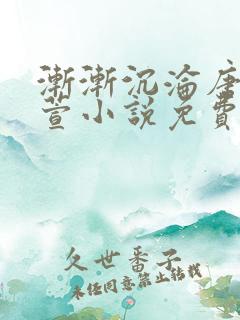 漸漸沉淪唐
萱小說免費
久世番子
未任同意禁止轉載